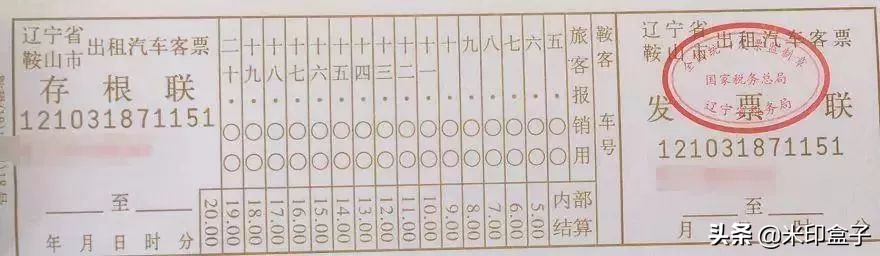 辽宁省
鞍山市
出租汽车客票
存根联
121031871151
至
年 月 日 时 分
二十·〇〇
十九·〇〇
十八·〇〇
十七·〇〇
十六·〇〇
十五·〇〇
十四·〇〇
十三·〇〇
十二·〇〇
十一·〇〇
十·〇〇
九·〇〇
八·〇〇
七·〇〇
六·〇〇
五·〇〇
旅客报销用
鞍客 车号
20.00
19.00
18.00
17.00
16.00
15.00
14.00
13.00
12.00
11.00
10.00
9.00
8.00
7.00
6.00
5.00
内部
结算
辽宁省
鞍山市
出租汽车客票
国家税务总局
发票联
121031871151
至
月 时 分
头条 @米印盒子